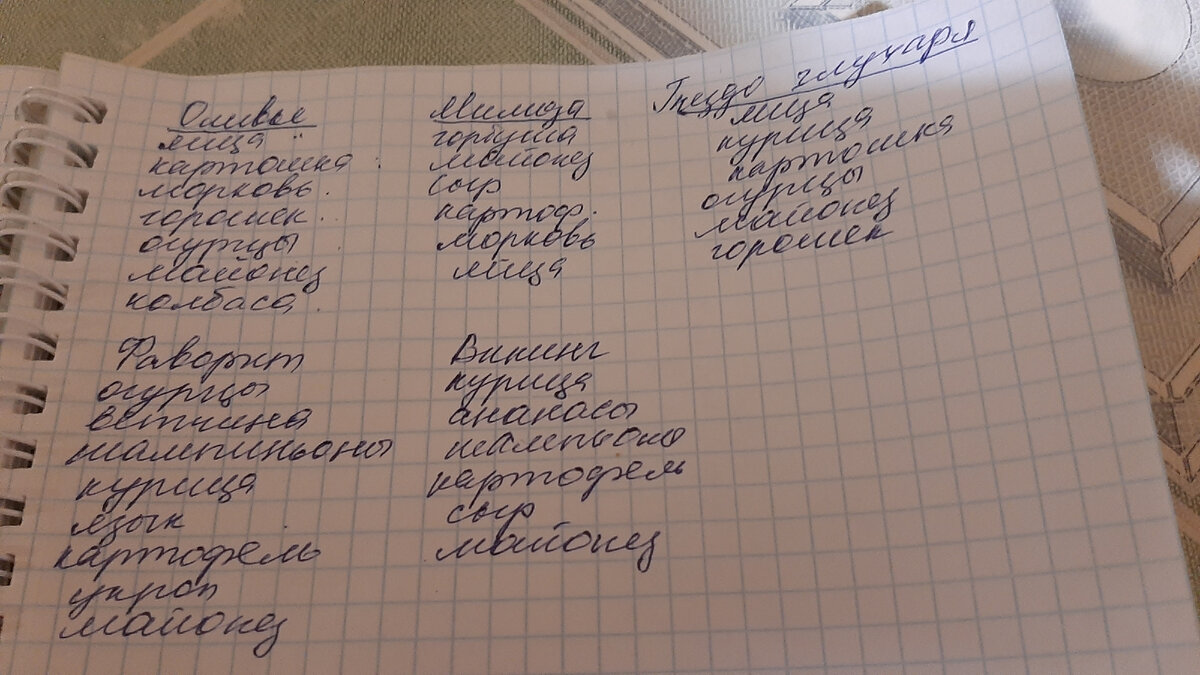 Оливье
яйца
картошка
морковь
горошек
огурцы
майонез
колбаса
Мимоза
горбуша
майонез
сыр
картоф.
морковь
яйца
Гнездо глухаря
яйца
курица
картошка
огурцы
майонез
горошек
Фаворит
огурцы
ветчина
шампиньоны
курица
язык
картофель
укроп
майонез
Викинг
курица
ананасы
шампьоно
картофель
сыр
майонез